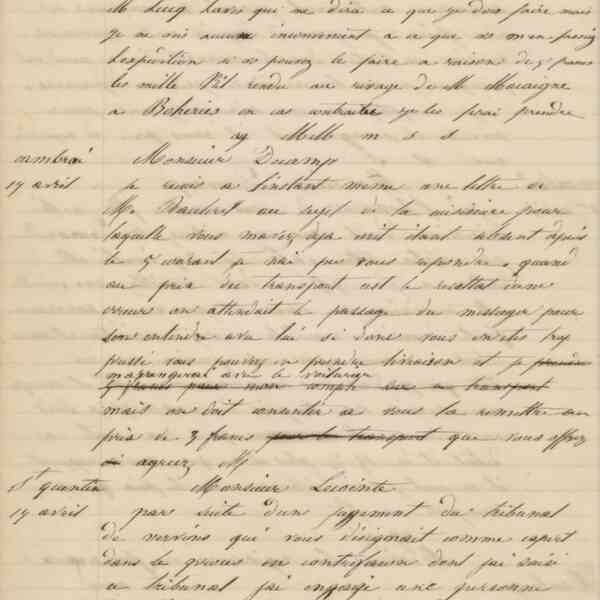 M Lucq Laris qui me dira ce que je dois faire mais
je ne vois aucun inconvenient a ce que vs m'en fassiez
L'expedition si vs pouvez le faire a raison de 5 francs
les mille Kil rendu au rivage de M Macaigne
a Boheries en cas contraire je les ferai prendre
ag Mlls m s s
cambrai Monsieur Decamp
19 avril je recois a l'instant même une lettre de
M. Baudret au sujet de la pour
laquelle vous m'avez deja ecrit etant absent depuis
le 5 courant je n'ai pu vous repondre. quand
au prix du transport est le resultat d'une
erreur on attendait le passage du messager pour
s'en entendre avec lui si donc vous en etes trop
pressé vous pouvez en prendre livraison et je prendrai
m'arrangerai avec le voiturier
5 francs pour mon compte sur ce transport
mais on doit consentir a vous la remettre au
prix de 3 francs pour le transport que vous offrez
agreez M
St quentin Monsieur Lecointe
19 avril par suite d'un jugement du tribunal
de vervins qui vous désignait comme expert
dans le proces en contrefacon dont j'ai saisi
ce tribunal j'ai engagé une personne